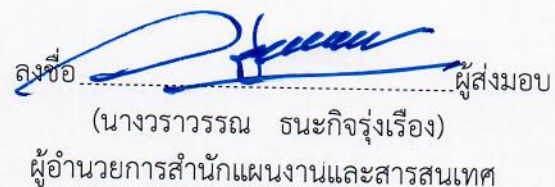 ลงชื่อ ผู้ส่งมอบ
(นางวราวรรณ ธนะกิจรุ่งเรือง)
ผู้อำนวยการสำนักแผนงานและสารสนเทศ